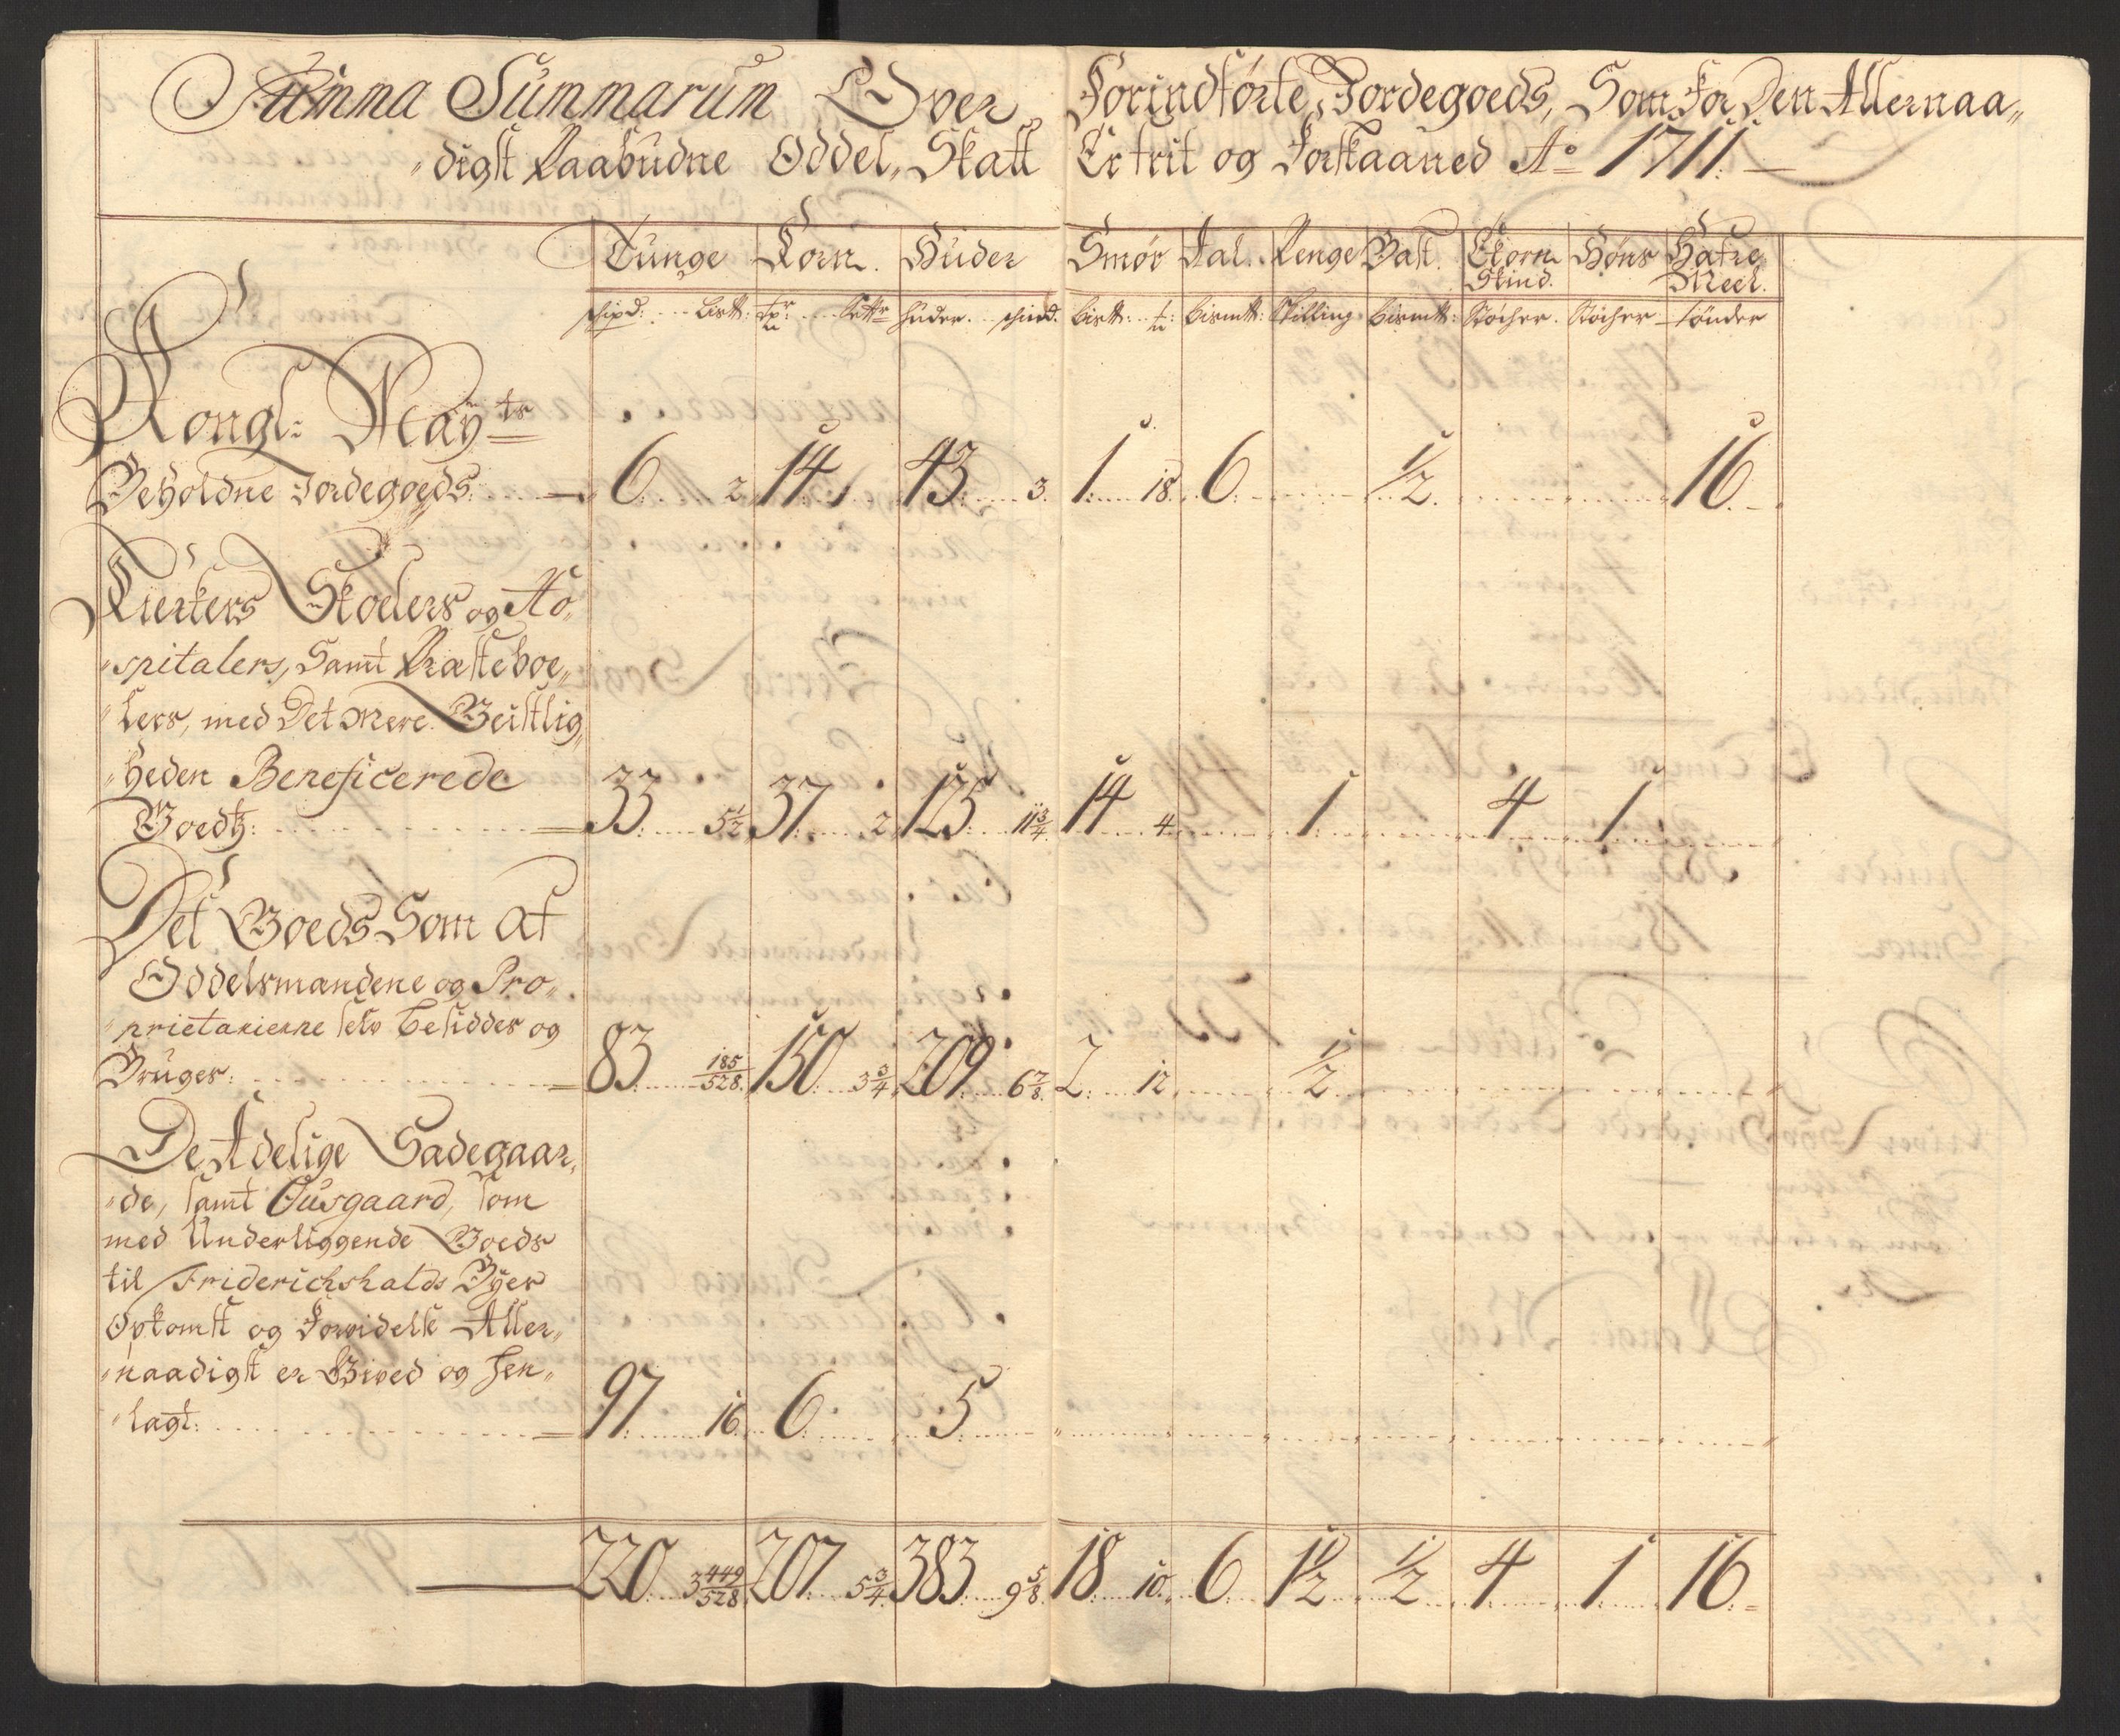 Summa Summarum Over Forindførte Jordegoeds, Som For Den Allernaa„
„digst Paabudne Oddel„ Skatt Er frit og Forskaaned Ao 1711
Tunge Korn. Huder Smør Sal. Penge Bast. Ekorn Skind. Høns Hafre Meel.
skipd: Lis℔: Huder. skind. Lis℔: Bism℔: Skilling Bism℔: Støcher. Støcher tønder
Kongl: Mayts
Beholdne Jordegoeds: 6 2 14 43 3. 1 18 6 ½ 16
Kierkers Stoelers og Ho„
„spitalers, Samt Præsteboe„
„lers, med Det mere Geistlig„
„heden Beneficerede
Goedtz: 33 5½ 37 2 125 11¾ 14 4 1 4 1
Det Goeds Som af
Oddelsmandene og Pro„
„prietarierne selv besiddes og
Bruges: 83 185/528 150 3¾ 209 6⅞ 2 12 ½
De Adelige Sadegaar„
„de, samt Ousgaard, som
med Underliggende Goeds
til Friderichshalds Byes
Opkomst og Forvidelse Aller„
„naadigst er Gived og hen„
„lagt: 97 16 6 5
220 3 449/528 207 5¾ 383 9⅝ 18 10 6 1½ ½ 4 1 16